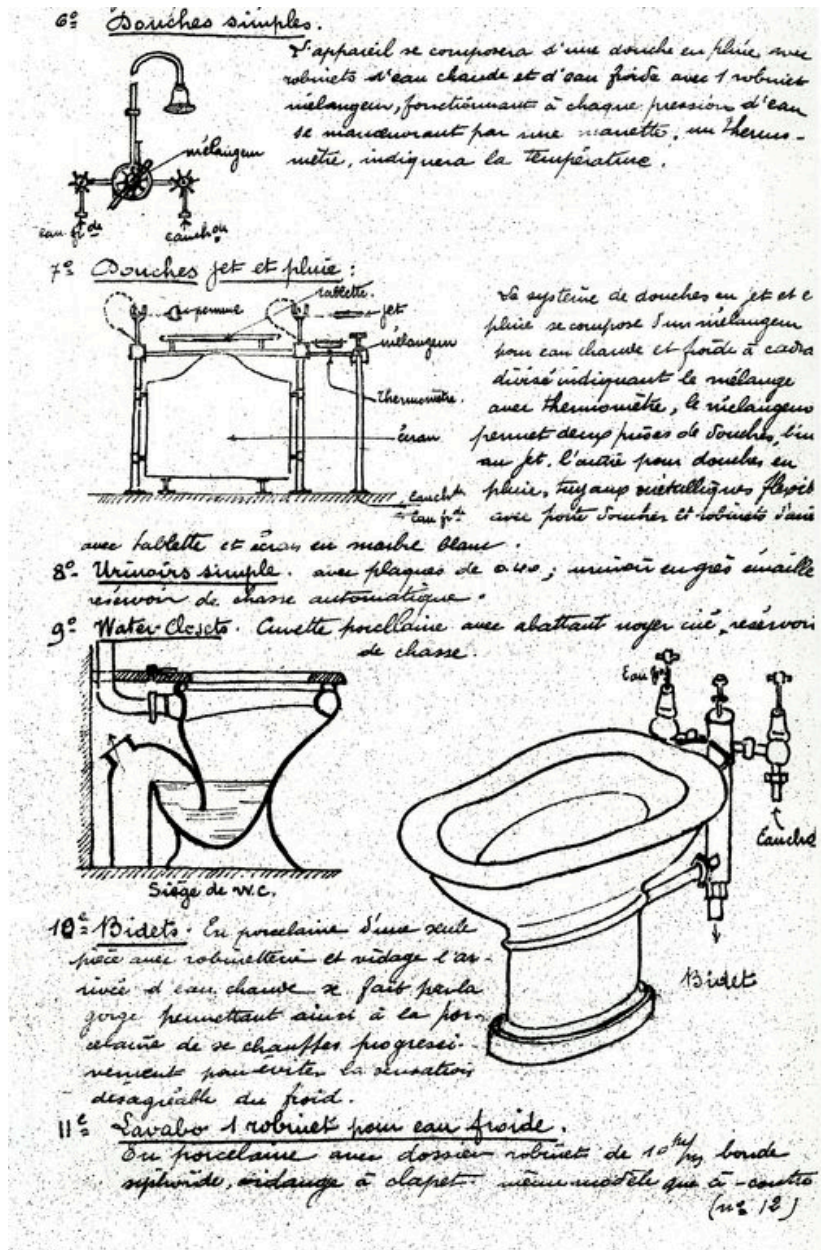 6º Douches simples.
L'appareil se composera d'une douche en pluie avec
robinets d'eau chaude et d'eau froide avec 1 robinet
mélangeur, fonctionnant à chaque pression d'eau
se manœuvrant par une manette, un thermo-
mètre, indiquera la température.
mélangeur
eau frde
eau chde
7º Douches jet et pluie :
tablette.
pomme
jet
mélangeur
thermomètre.
écran
Eau chde
Eau frde
Le système de douches en jet et e
pluie se compose d'un mélangeur
pour eau chaude et froide à cadra
divisé indiquant le mélange
avec thermomètre, le mélangeur
permet deux prises de douches, l'un
au jet, l'autre pour douches en
pluie, tuyaux métalliques flexib
avec porte douches et robinets d'arrê
avec tablette et écran en marbre blanc.
8º- Urinoirs simple. avec plaques de 0.40 ; urinoir en grès émaillé
réservoir de chasse automatique.
9º- Water-Closets. Cuvette porcellaine avec abattant noyer ciré, réservoir
de chasse
Siège de W.C.
Eau fr
Eau chd
Bidet
10e Bidets. En porcelaine d'une seule
pièce avec robinetterie et vidage l'ar-
rivée d'eau chaude se fait par la
gorge permettant ainsi à la por-
celaine de se chauffer progressi-
vement pour éviter la sensation
désagréable du froid.
11e Lavabo 1 robinet pour eau froide.
En porcelaine avec dossier robinet de 10 m/m bonde
siphoïde, vidange à clapet. même modèle que ci-contre
(nº 12)